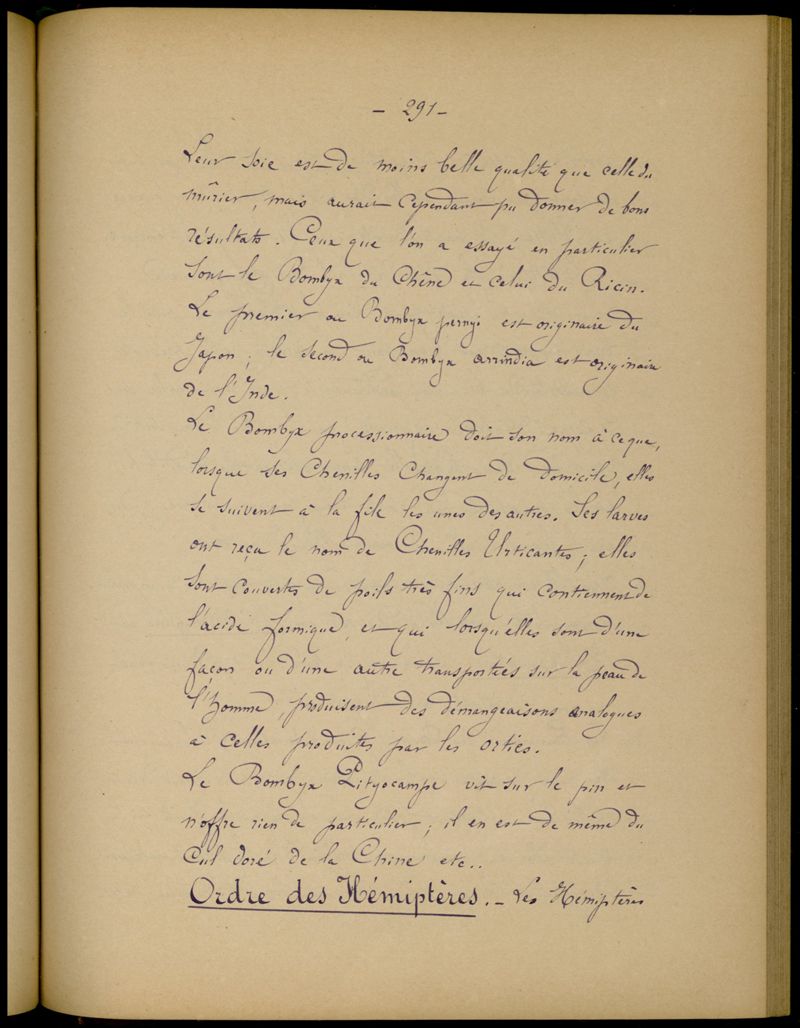 - 291 -
Leur soie est de moins belle qualité que celle du
mûrier, mais aurait cependant pu donner de bons
résultats. Ceux que l'on a essayé en particulier
sont le Bombyx du Chêne et celui du Ricin.
Le premier ou Bombyx pernyi est originaire du
Japon ; le second ou Bombyx arrindia est originaire
de l'Inde.
Le Bombyx processionnaire doit son nom à ce que,
lorsque ses Chenilles changent de domicile, elles
se suivent à la file les unes des autres. Ses larves
ont reçu le nom de Chenilles Urticantes ; elles
sont couvertes de poils très fins qui contiennent de
l'acide formique, et qui lorsqu'elles sont d'une
façon ou d'une autre transportées sur la peau de
l'homme, produisent des démangeaisons analogues
à celles produites par les orties.
Le Bombyx Pityocampe vit sur le pin et
n'offre rien de particulier ; il en est de même du
Cul doré de la Chine etc..
Ordre des Hémiptères. - Les Hémiptères